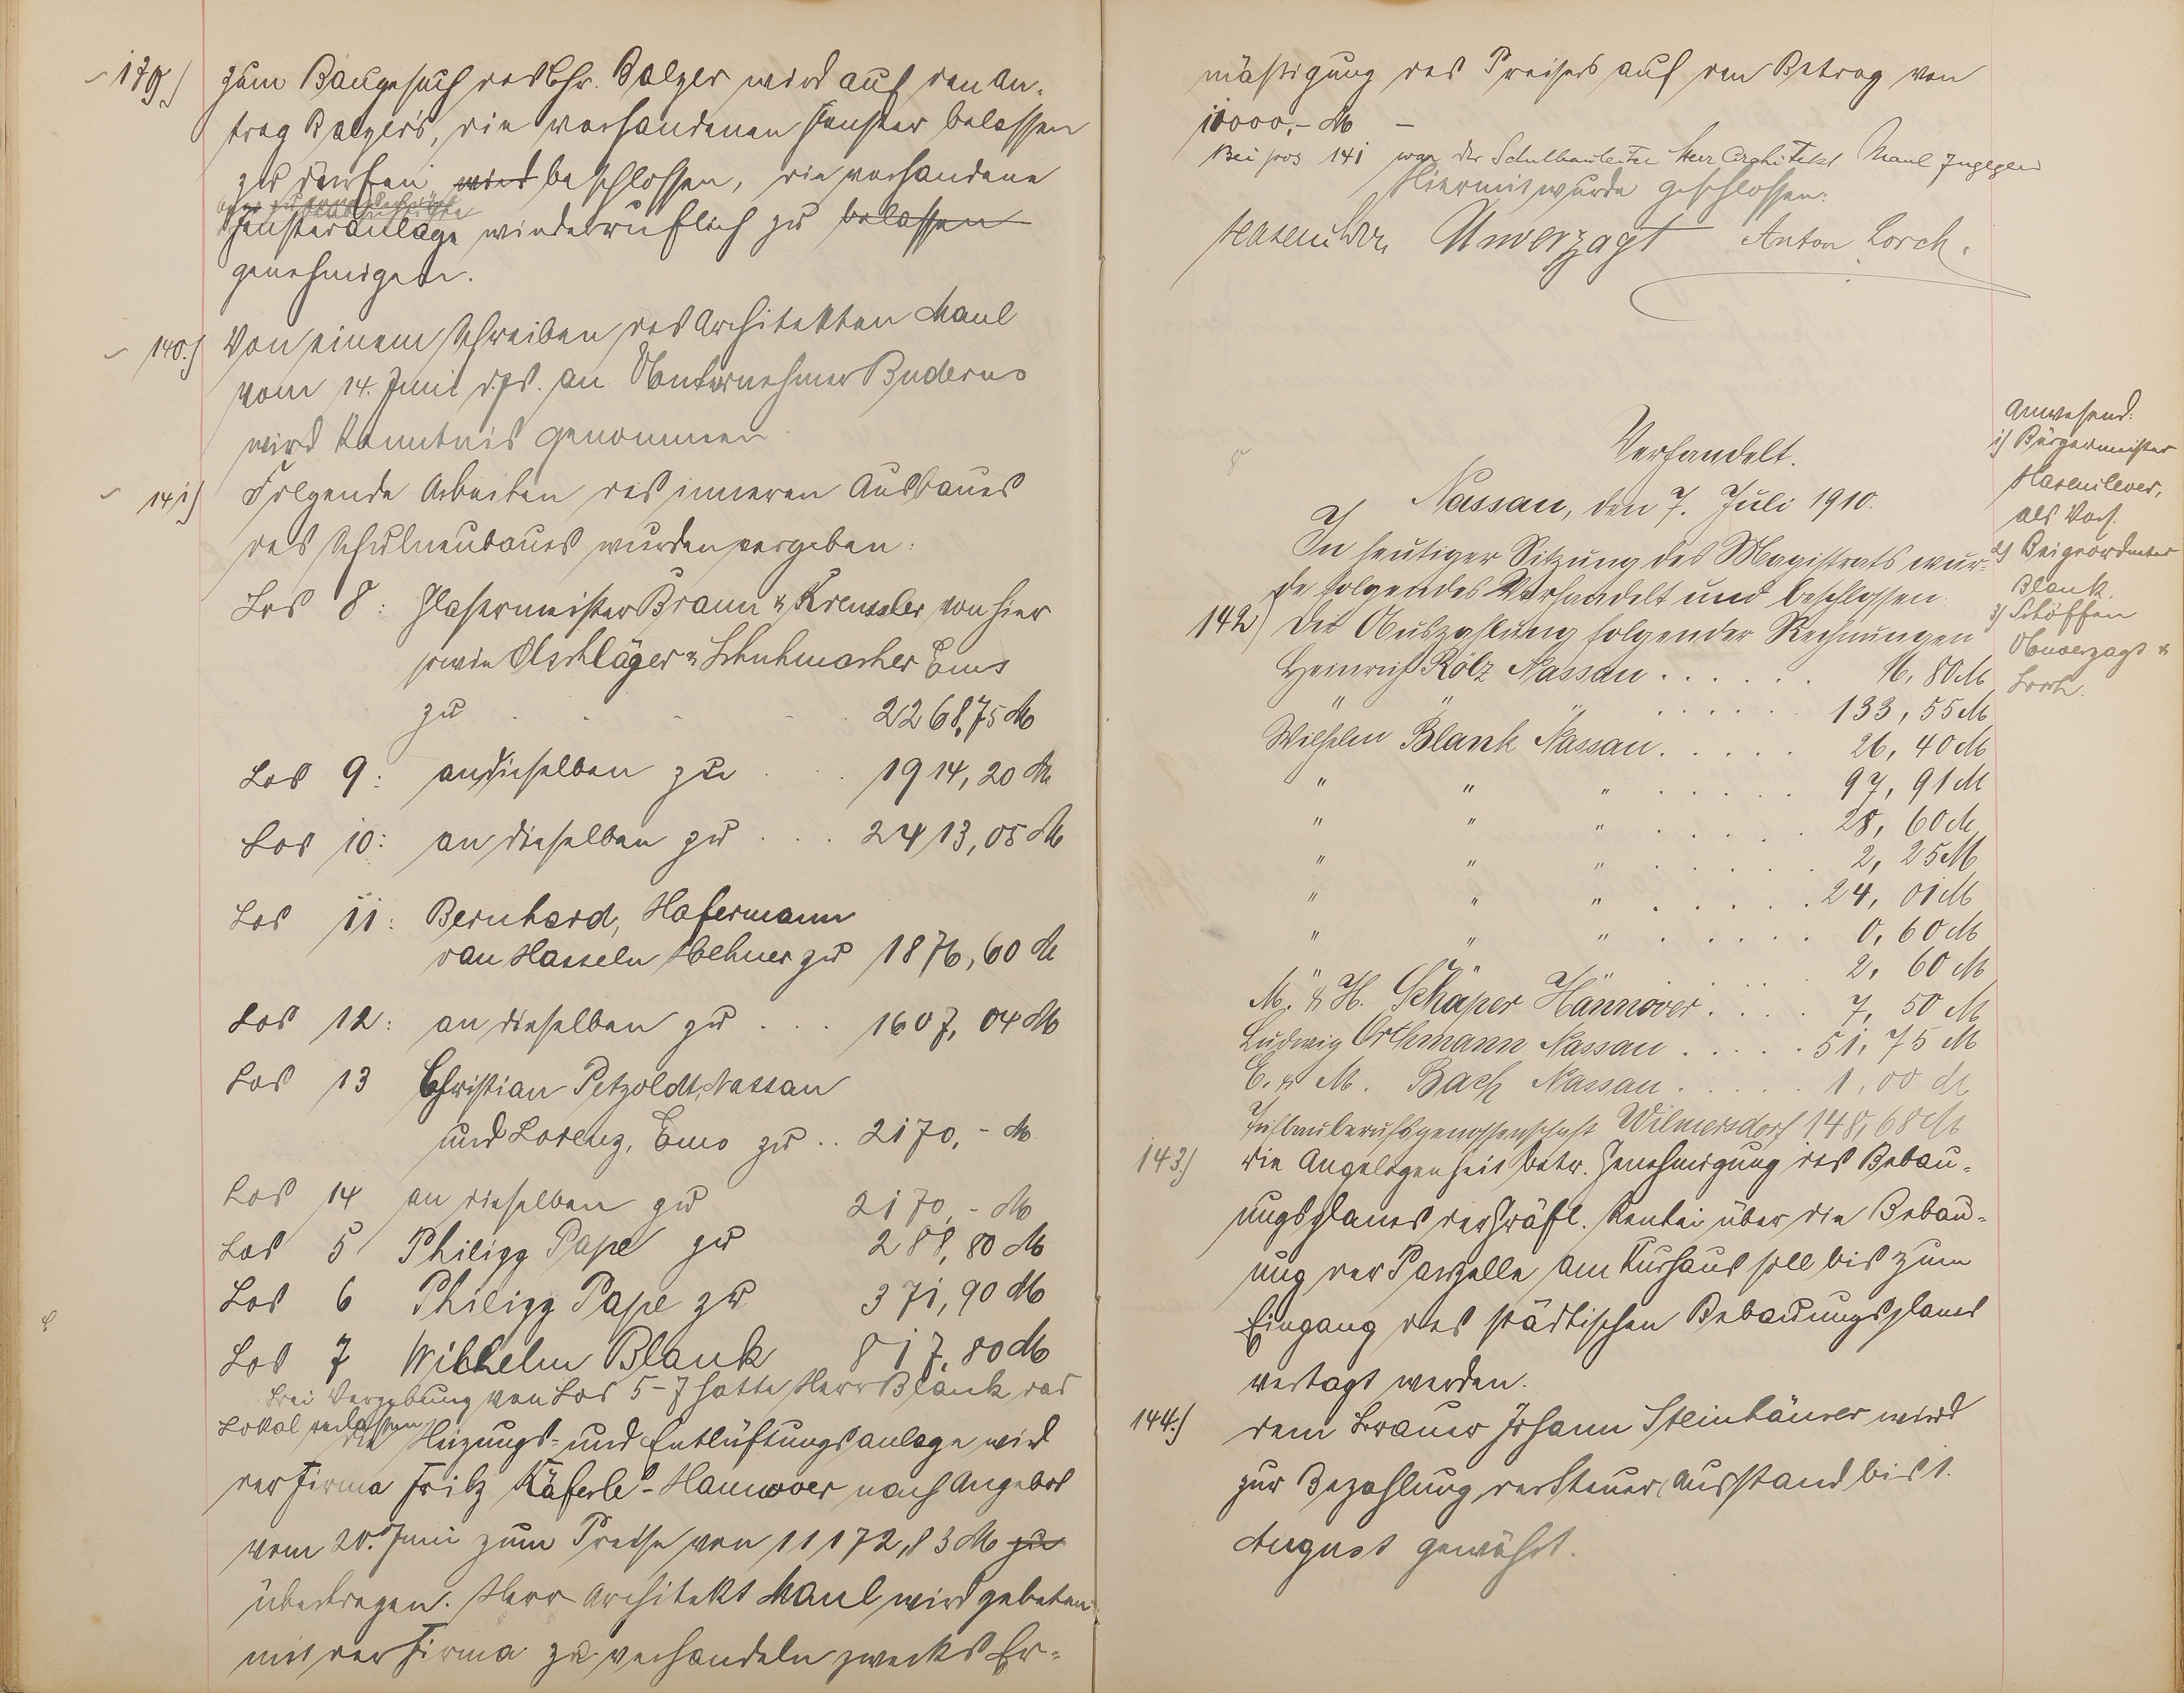 139.) Zum Baugesuch des Chr. Balzer wird auf den An-
trag Balzer's, die vorhandenen Fenster belassen
zu dürfen, wird beschlossen, die vorhandene
Fensteranlage wiederruflich zu belassen
genehmigen.
140.) Von einem Schreiben des Architekten Maul
vom 14. Juni d. Js. an Unternehmer Buderus
wird Kenntnis genommen.
141) Folgende Arbeiten des inneren Ausbaues
des Schulneubaues wurden vergeben:
Los 8: Glasermeister Braun & Kreussler von hier
sowie Oschläger & Schuhmacher Ems
zu . . . . 2268,75 M
Los 9: an dieselben zu . . 1914,20 M
Los 10: an dieselben zu . . . 2413,05 M
Los 11: Bernhard, Hafermann
van Hasseln Mehner zu 1876,60 M
Los 12: an dieselben zu . . . 1607,04 M
Los 13 Christian Petzoldt, Nassau
und Lorenz, Ems zu . . 2170,- M
Los 14 an dieselben zu 2170,- M
Los 5 Philipp Pape zu 288,80 M
Los 6 Philipp Pape zu 371,90 M
Los 7 Wilhelm Blank 817,80 M
Bei Vergebung von Los 5-7 hatte Herr Blank das
Lokal verlassen.
die Heizungs- und Entlüftungsanlage wird
der Firma Fritz Käferle-Hannover nach Angebot
vom 20. Juni zum Preise von 11172,83 M zu
übertragen. Herr Architekt Maul wird gebeten
mit der Firma zu verhandeln zwecks Er-
mäßigung des Preises auf den Betrag von
11000,- M -
Bei pos 141 war der Schulbauleiter Herr Architekt Maul zugegen
Hiermit wurde geschlossen:
Hasenclever Unverzagt Anton Lorch.
Verhandelt.
Nassau, den 7. Juli 1910.
Anwesend:
1) Bürgermeister
Hasenclever,
als Vors.
2) Beigeordneter
Blank
3) Schöffen
Unverzagt &
Lorch.
In heutiger Sitzung des Magistrats wur-
de folgendes Verhandelt und beschlossen
142) Die Auszahlung folgender Rechnungen
Heinrich Kölz Nassau . . . . . . 16,80 M
" " " . . . . . 133,55 M
Wilhelm Blank Nassau . . . . . 26,40 M
" " " . . . . . 97,91 M
" " " . . . . . 28,60 M
" " " . . . . . . 2,25 M
" " " . . . . . 24,01 M
" " " . . . . . 0,60 M
" " " . . . 2,60 M
M. & H. Schaper Hannover . . . . 7,50 M
Ludwig Orthmann Nassau . . . . . 51,75 M
E. & M. Bach Nassau . . . . . 1,00 M
Tiefbauberufsgenossenschaft Wilmersdorf 148,68 M
143.) die Angelegenheit betr. Genehmigung des Bebau-
ungsplanes der Gräfl. Rentei über die Bebau-
ung der Parzelle am Kurhaus soll bis zum
Eingang des städtischen Bebauungsplanes
vertagt werden.
144.) dem Brauer Johann Steinhäuser wird
zur Bezahlung der Steuer Ausstand bis 1.
August gewährt.